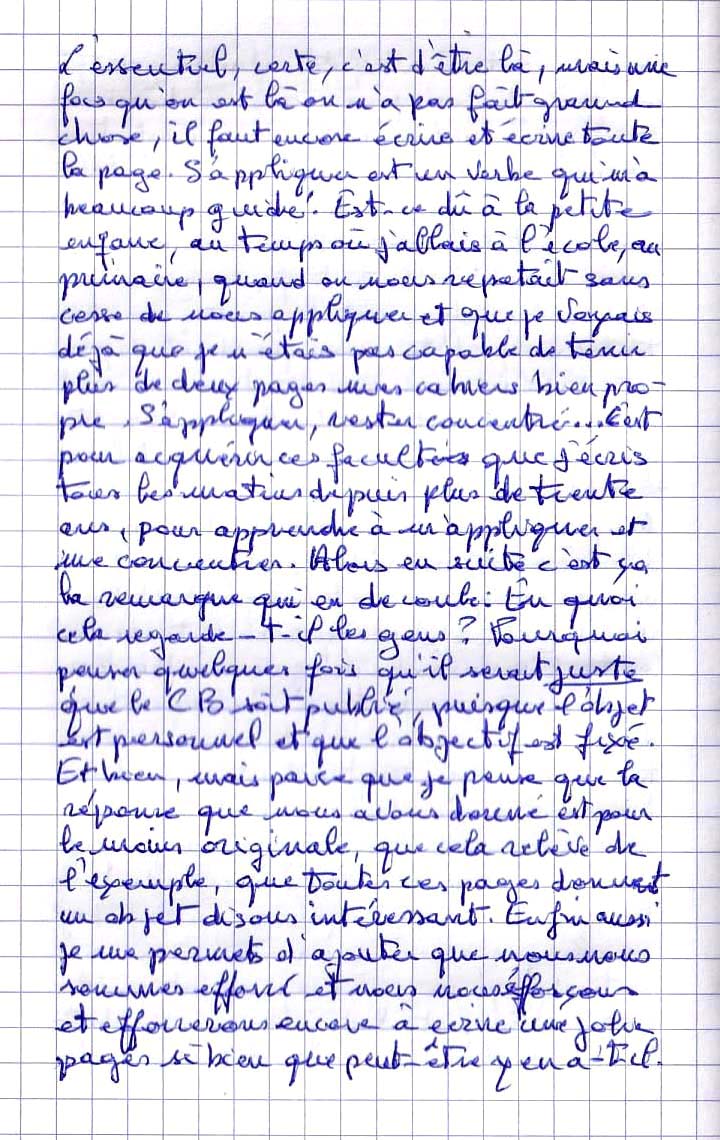 L'essentiel, certe, c'est d'être là, mais une
fois qu'on est là on n'a pas fait grand
chose, il faut encore écrire et écrire toute
la page. S'appliquer est un verbe qui m'a
beaucoup guidé. Est-ce dû à la petite
enfance, au temps où j'allais à l'école, au
primaire, quand on nous repetait sans
cesse de nous appliquer et que je voyais
déjà que je n'étais pas capable de tenir
plus de deux pages mes cahiers bien pro-
pre. S'appliquer, rester concentré... C'est
pour acquérir ces facultés que j'écris
tous les matins depuis plus de trente
ans, pour apprendre à m'appliquer et
me concentrer. Alors en suite c'est ça
la remarque qui en decoule : En quoi
cela regarde-t-il les gens ? Pourquoi
penser quelques fois qu'il serait juste
que le CB soit publié, puisque l'objet
est personnel et que l'objectif est fixé.
Et bien, mais parce que je pense que la
réponse que nous avons donné est pour
le moins originale, que cela relève de
l'exemple, que toutes ces pages donnent
un objet disons intéressant. Enfin aussi
je me permets d'ajouter que nous nous
sommes efforcé et nous nous efforçons
et efforcerons encore à ecrire une jolie
pages si bien que peut-être y en a-t-il.